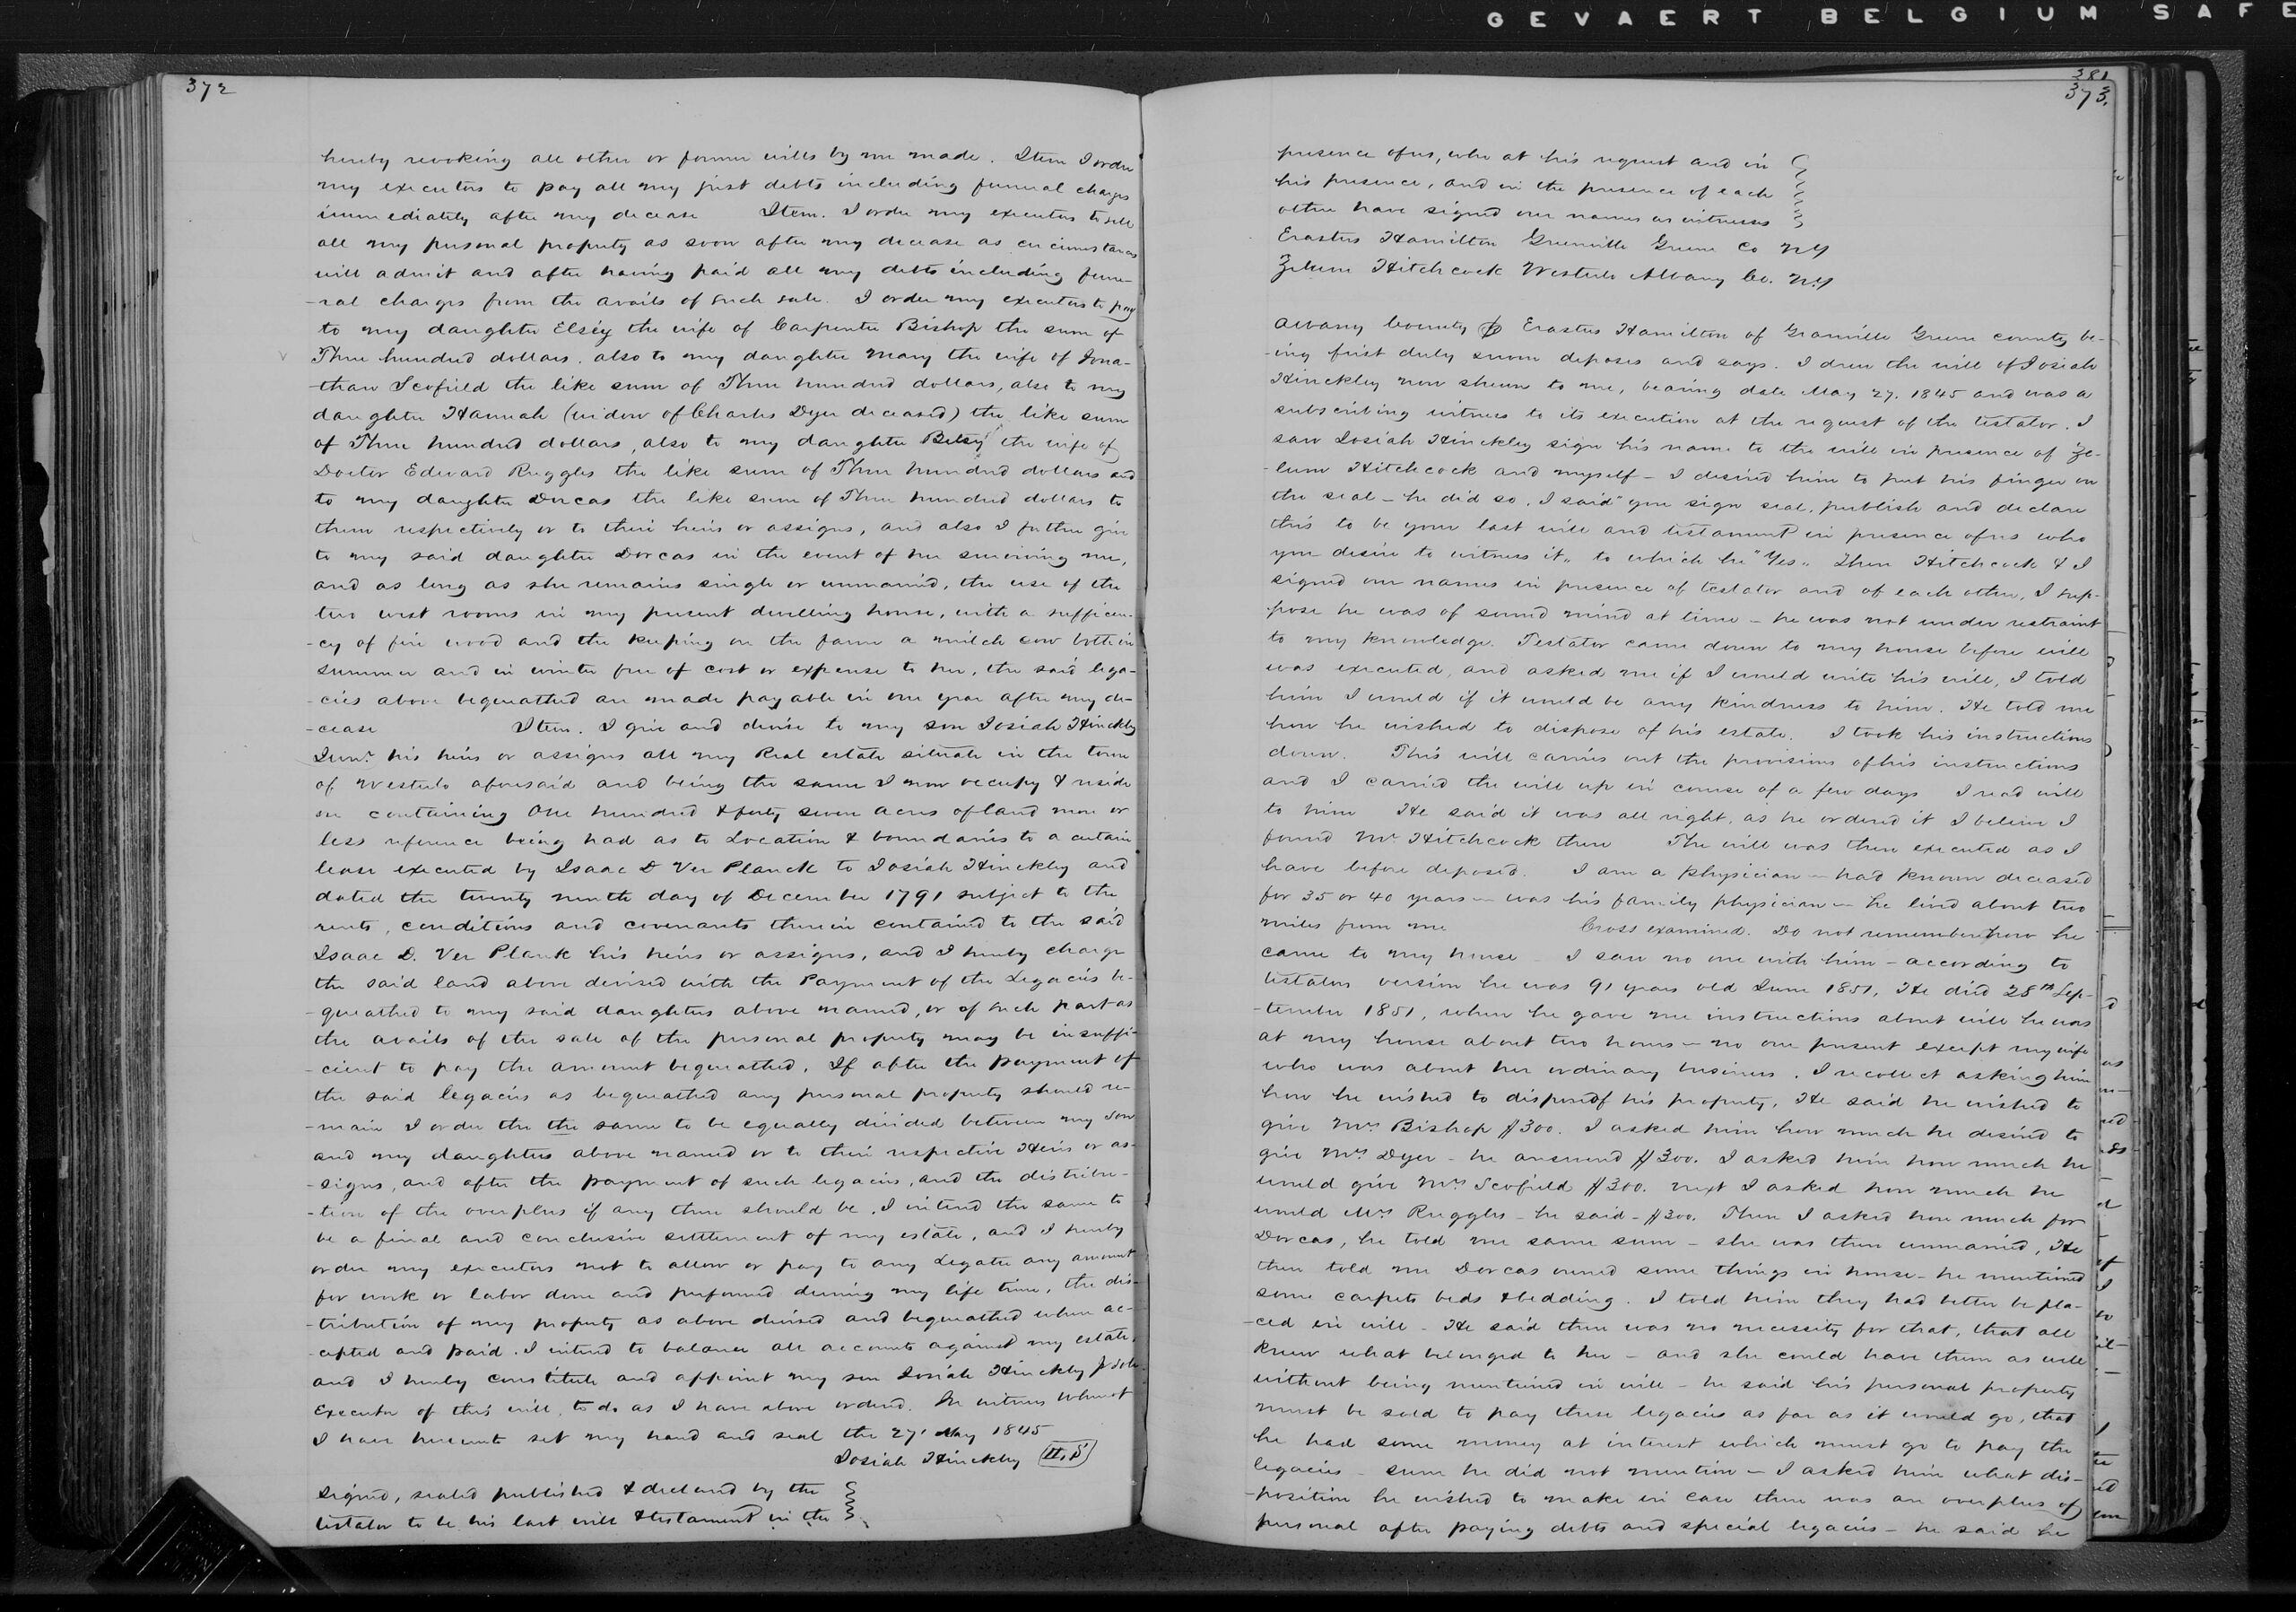 GEVAERT BELGIUM SAFE
372
hereby revoking all other or former wills by me made. Item I order
my executors to pay all my just debts including funeral charges
immediately after my decease Item. I order my executors to sell
all my personal property as soon after my decease as circumstances
will admit and after having paid all my debts including fune-
-ral charges from the avails of such sale. I order my executors to pay
to my daughter Elsey the wife of Carpenter Bishop the sum of
Three hundred dollars. also to my daughter Mary the wife of Jona-
-than Scofield the like sum of Three hundred dollars, also to my
daughter Hannah (widow of Charles Dyer deceased) the like sum
of Three hundred dollars, also to my daughter Betsy the wife of
Doctor Edward Ruggles the like sum of Three hundred dollars and
to my daughter Dorcas the like sum of Three hundred dollars to
them respectively or to their heirs or assigns, and also I further give
to my said daughter Dorcas in the event of her surviving me,
and as long as she remains single or unmarried, the use of the
two west rooms in my present dwelling house, with a sufficien-
-cy of fire wood and the keeping on the farm a milch cow both in
summer and in winter free of cost or expense to her, the said lega-
-cies above bequeathed are made payable in one year after my de-
-cease Item. I give and devise to my son Josiah Hinckley
Junr. his heirs or assigns all my Real estate situate in the town
of Westerlo aforesaid and being the same I now occupy & reside
on containing One hundred & forty seven acres of land more or
less reference being had as to Location & boundaries to a certain
lease executed by Isaac D Ver Planck to Josiah Hinckley and
dated the twenty ninth day of December 1791 subject to the
rents, conditions and covenants therein contained to the said
Isaac D. Ver Plank his heirs or assigns, and I hereby charge
the said land above devised with the Payment of the Legacies be-
-queathed to my said daughters above named, or of such part as
the avails of the sale of the personal property may be insuffi-
-cient to pay the amount bequeathed. If after the payment of
the said legacies as bequeathed any personal property should re-
-main I order the the same to be equally divided between my son
and my daughters above named or to their respective Heirs or as-
-signs, and after the payment of such legacies, and the distribu-
-tion of the overplus if any there should be, I intend the same to
be a final and conclusive settlement of my estate, and I hereby
order my executors not to allow or pay to any Legatee any amount
for work or labor done and performed during my life time, the dis-
-tribution of my property as above devised and bequeathed when ac-
-cepted and paid. I intend to balance all accounts against my estate,
and I hereby constitute and appoint my son Josiah Hinckley Jr sole
Executor of this will, to do as I have above ordered. In witness whereof
I have hereunto set my hand and seal the 27' May 1845
Josiah Hinckley
Signed, sealed published & declared by the
testator to be his last will & testament in the
381
373.
presence of us, who at his request and in
his presence, and in the presence of each
other have signed our names as witnesses
Erastus Hamilton Greenville Greene Co NY
Zelum Hitchcock Westerlo Albany Co. N.Y
Albany County Erastus Hamilton of Granville Greene county be-
-ing first duly sworn deposes and says. I drew the will of Josiah
Hinckley now shewn to me, bearing date May 27. 1845 and was a
subscribing witness to its execution at the request of the testator. I
saw Josiah Hinckley sign his name to the will in presence of Ze-
-lum Hitchcock and myself – I desired him to put his finger on
the seal – he did so. I said "you sign seal, publish and declare
this to be your last will and testament in presence of us who
you desire to witness it" to which he "Yes" Then Hitchcock & I
signed our names in presence of testator and of each other, I sup-
-pose he was of sound mind at time – he was not under restraint
to my knowledge. Testator came down to my house before will
was executed, and asked me if I would write his will, I told
him I would if it would be any kindness to him. He told me
how he wished to dispose of his estate. I took his instructions
down. This will carries out the provisions of his instructions
and I carried the will up in course of a few days I read will
to him He said it was all right, as he ordered it I believe I
found Mr. Hitchcock there The will was then executed as I
have before deposed. I am a physician – had known deceased
for 35 or 40 years – was his family physician – he lived about two
miles from me Cross examined. Do not remember how he
came to my house – I saw no one with him – according to
testators version he was 91 years old June 1851. He died 28th Sep-
-tember 1851, when he gave me instructions about will he was
at my house about two hours – no one present except my wife
who was about her ordinary business. I recollect asking him
how he wished to dispose of his property, He said he wished to
give Mrs Bishop $300. I asked him how much he desired to
give Mrs Dyer – he answered $300. I asked him how much he
would give Mrs Scofield $300. next I asked how much he
would Mrs Ruggles – he said – $300. Then I asked how much for
Dorcas, he told me same sum – she was then unmarried, He
then told me Dorcas owned some things in house – he mentioned
some carpets beds & bedding. I told him they had better be pla-
-ced in will – He said there was no necessity for that, that all
knew what belonged to her – and she could have them as well
without being mentioned in will – he said his personal property
must be sold to pay these legacies as far as it would go, that
he had some money at interest which must go to pay the
legacies – sum he did not mention – I asked him what dis-
-position he wished to make in case there was an overplus of
personal after paying debts and special legacies – he said he